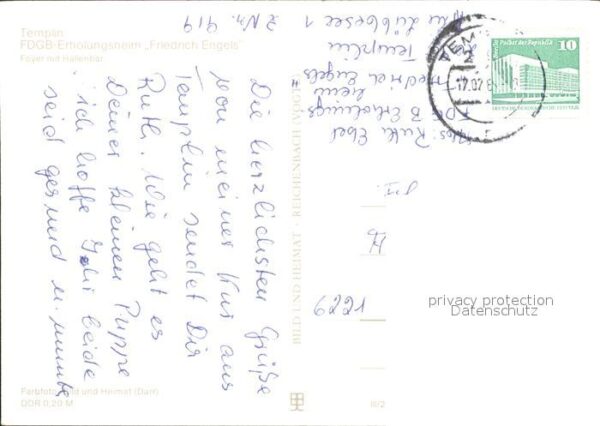 Templin
FDGB-Erholungsheim „Friedrich Engels"
Foyer mit Hallenbar
Z. Nr. 919
Die herzlichsten Grüße
von meiner Kur aus
Templin sendet Dir
Ruth. Wie geht es
Deiner kleinen Puppe
ich hoffe Ihr beide
seid gesund u. munter
Abs: Ruth Ebel
FDGB Erholungs
heim
Friedrich Engels
Templin
Am Lübbesee 1
BILD UND HEIMAT · REICHENBACH (VOGTL)
10
Palast der Republik
DEUTSCHE DEMOKRATISCHE REPUBLIK
17.07.8
1229
privacy protection
Datenschutz
Farbfoto: Bild und Heimat (Darr)
DDR 0,20 M
III/2